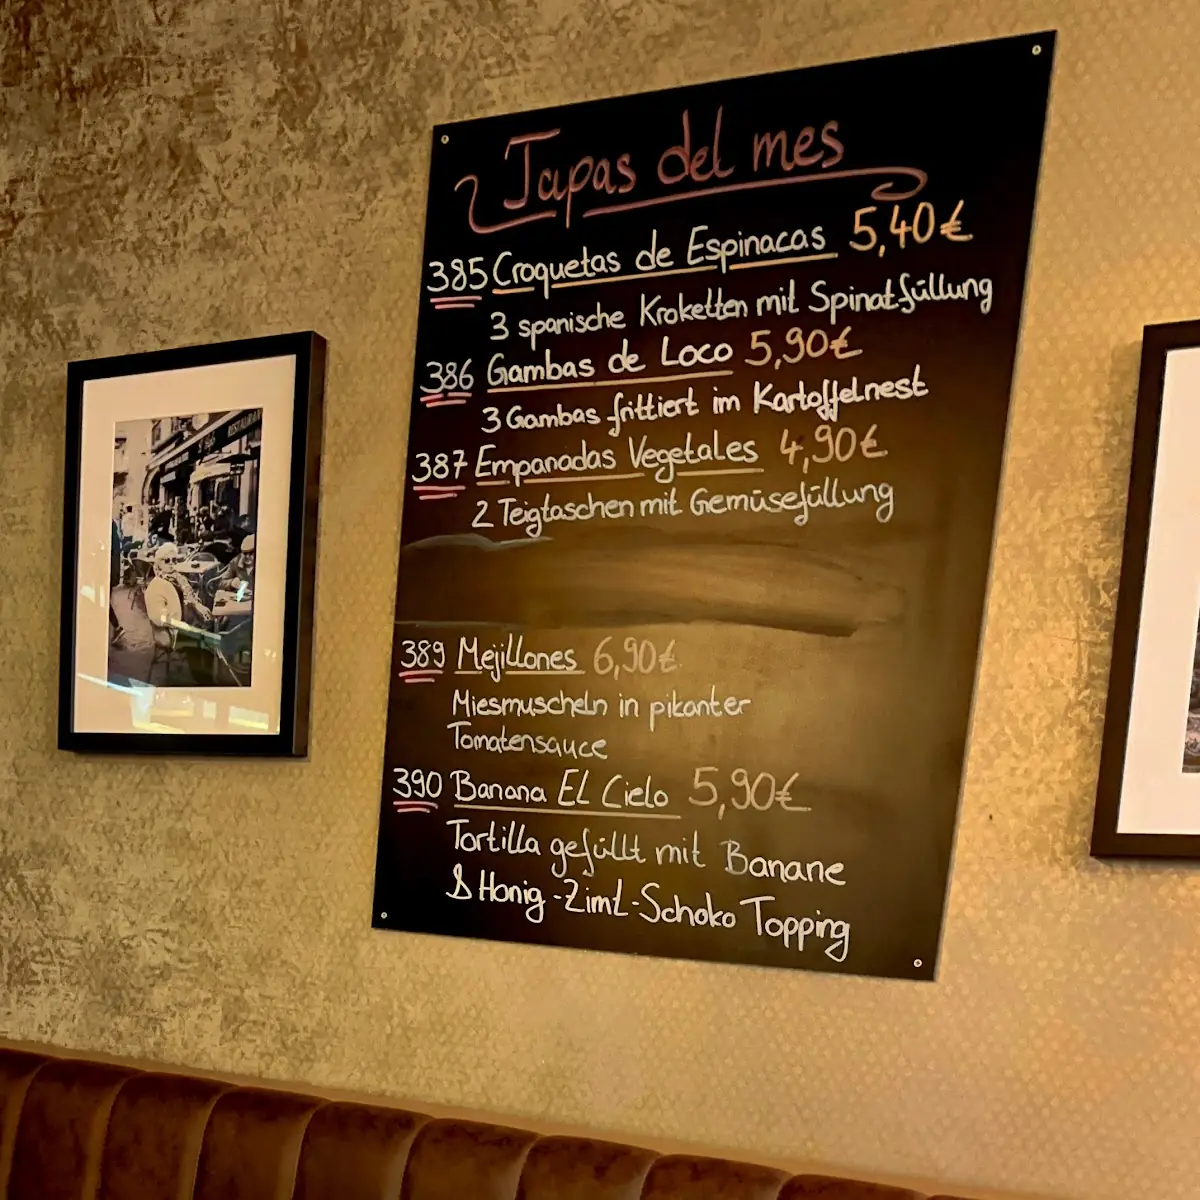 Tapas del mes
385 Croquetas de Espinacas 5,40€
3 spanische Kroketten mit Spinatfüllung
386 Gambas de Loco 5,90€
3 Gambas frittiert im Kartoffelnest
387 Empanadas Vegetales 4,90€
2 Teigtaschen mit Gemüsefüllung
389 Mejillones 6,90€
Miesmuscheln in pikanter
Tomatensauce
390 Banana El Cielo 5,90€
Tortilla gefüllt mit Banane
& Honig-Zimt-Schoko Topping